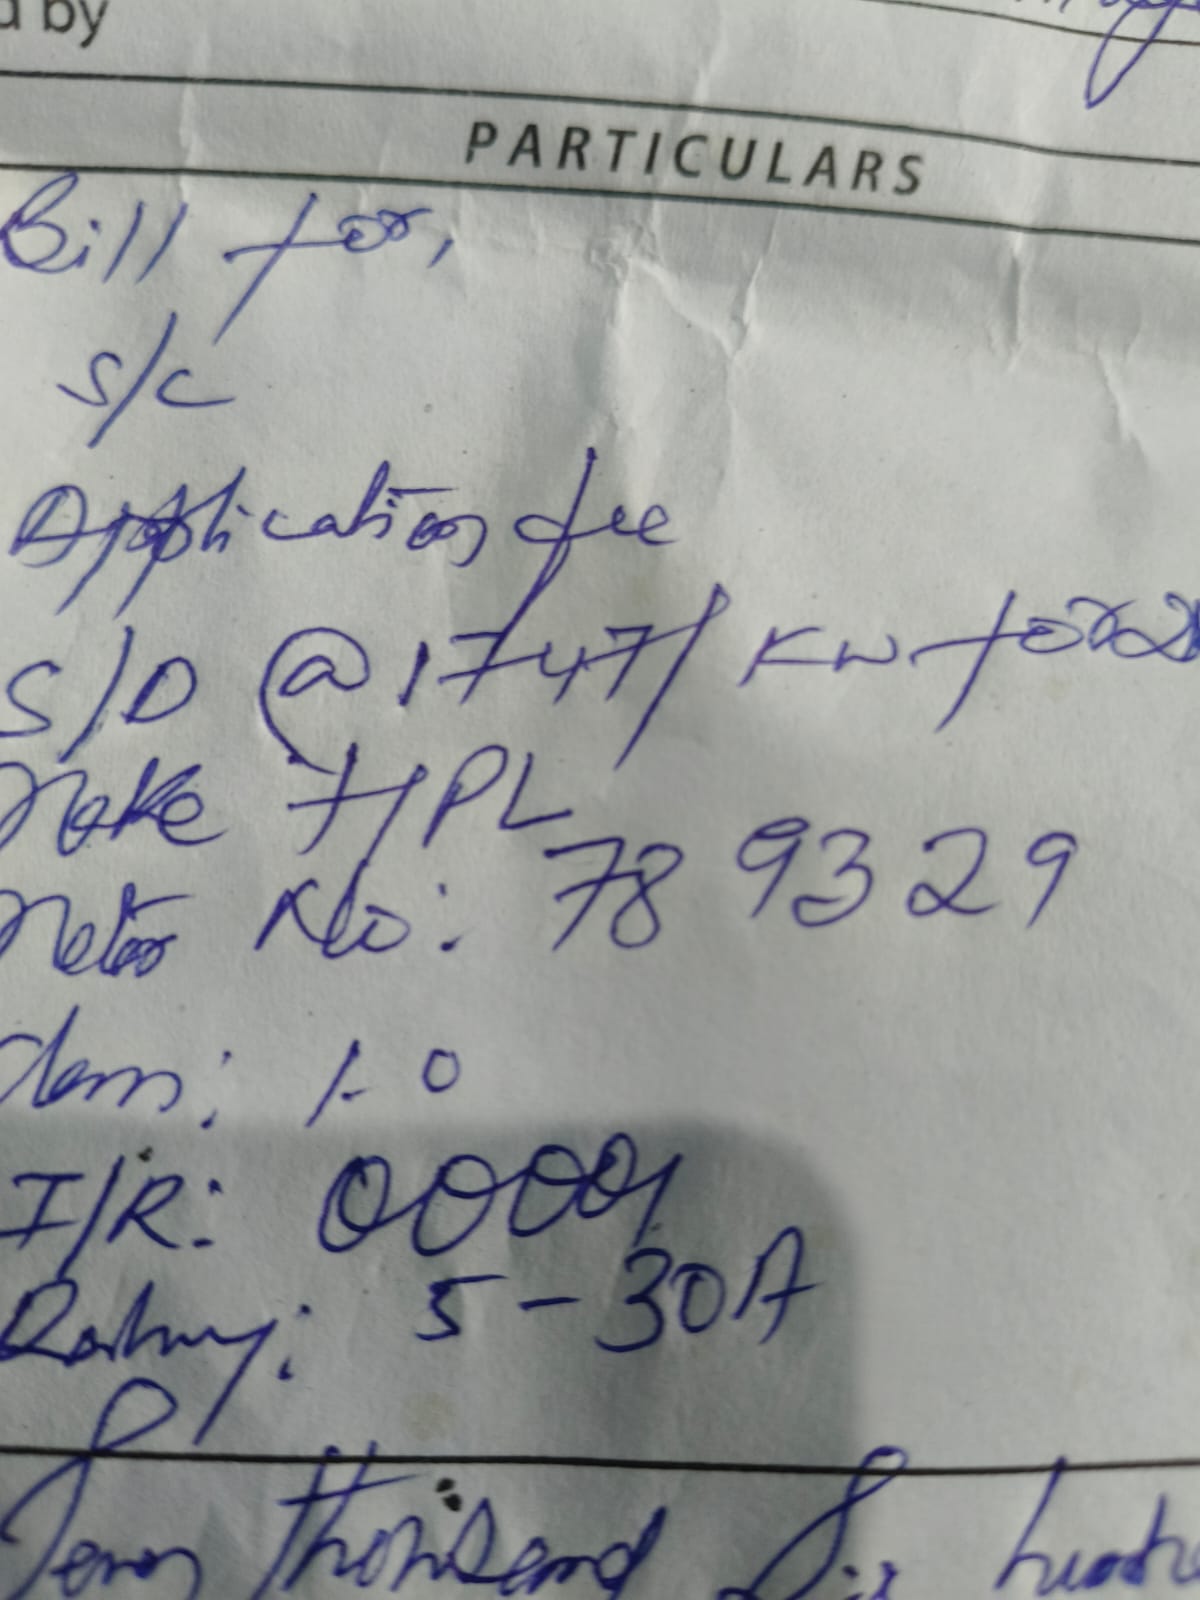 d by
PARTICULARS
Bill for,
S/C
Application fee
S/D @ 1747/ KW for 2
Make HPL
Meter No: 789329
Class: 1.0
I/R: 00001
Rating: 5-30A
Seven Thousand Six hundre